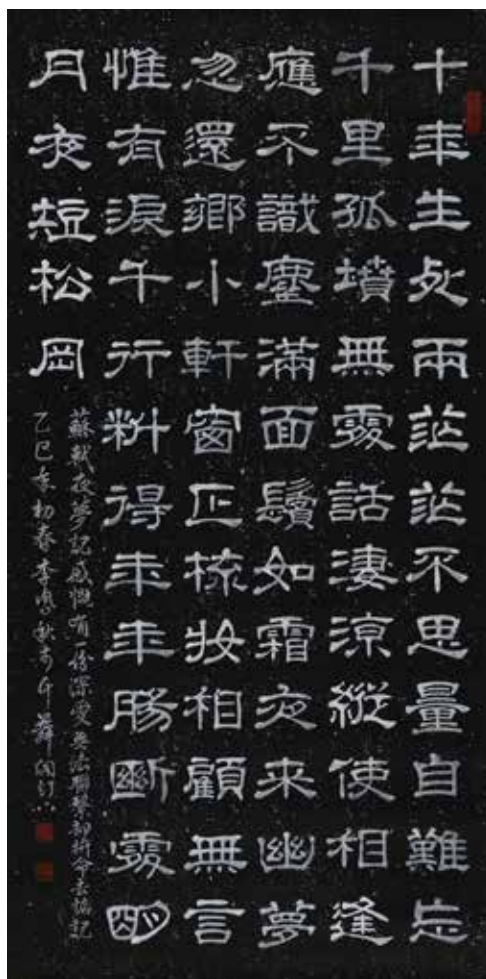 十年生死兩茫茫不思量自難忘
千里孤墳無處話淒涼縱使相逢
應不識塵滿面鬢如霜夜来幽夢
忽還鄉小軒窗正梳妝相顧無言
惟有淚千行料得年年腸斷處明
月夜短松岡
蘇軾夜夢記感
乙巳年初春李